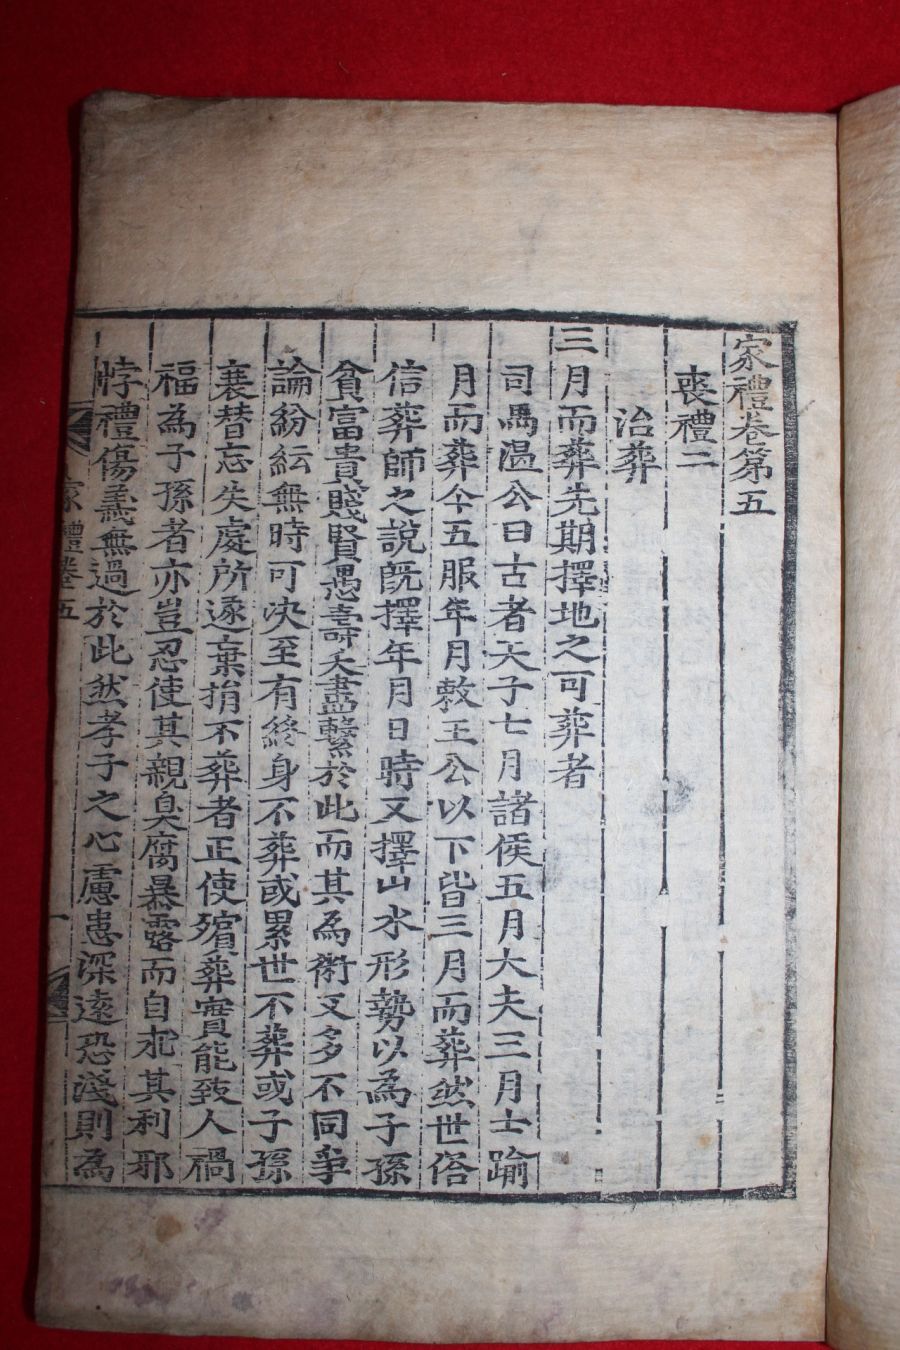 家禮卷第五
喪禮二
治葬
三月而葬先期擇地之可葬者
司馬溫公曰古者天子七月諸侯五月大夫三月士踰
月而葬今五服年月敕王公以下皆三月而葬然世俗
信葬師之說旣擇年月日時又擇山水形勢以爲子孫
貧富貴賤賢愚壽夭盡繫於此而其爲術又多不同爭
論紛紜無時可决至有終身不葬或累世不葬或子孫
衰替忘失處所遂棄捐不葬者正使殯葬實能致人禍
福爲子孫者亦豈忍使其親臭腐暴露而自求其利耶
悖禮傷義無過於此然孝子之心慮患深遠恐淺則爲
家禮卷五
一